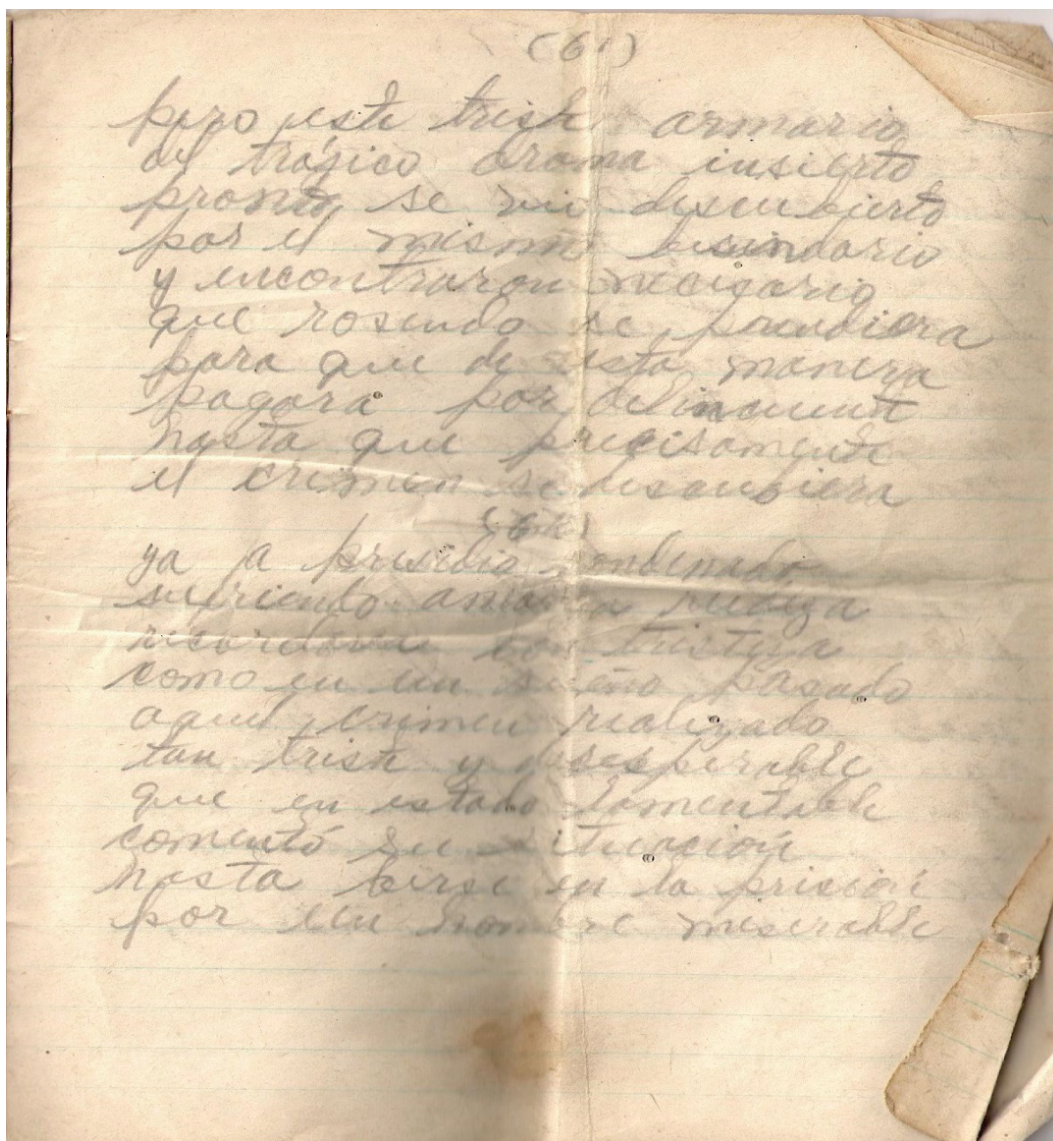 (61)
pero este triste armario
del trájico drama insierto
pronto se vio descubierto
por el mismo besindario
y encontraron necesario
que rosendo se prendiera
para que de esta manera
pagara por delincuente
hasta que precisamente
el crimen se descubiera
ya a presidio condenado
sufriendo amarga rudeza
recordava con tristeza
como en un sueño pasado
aquel crimen realizado
tan triste y desesperable
que en estado lamentable
comentó su situación
hasta berse en la prisión
por un hombre miserable